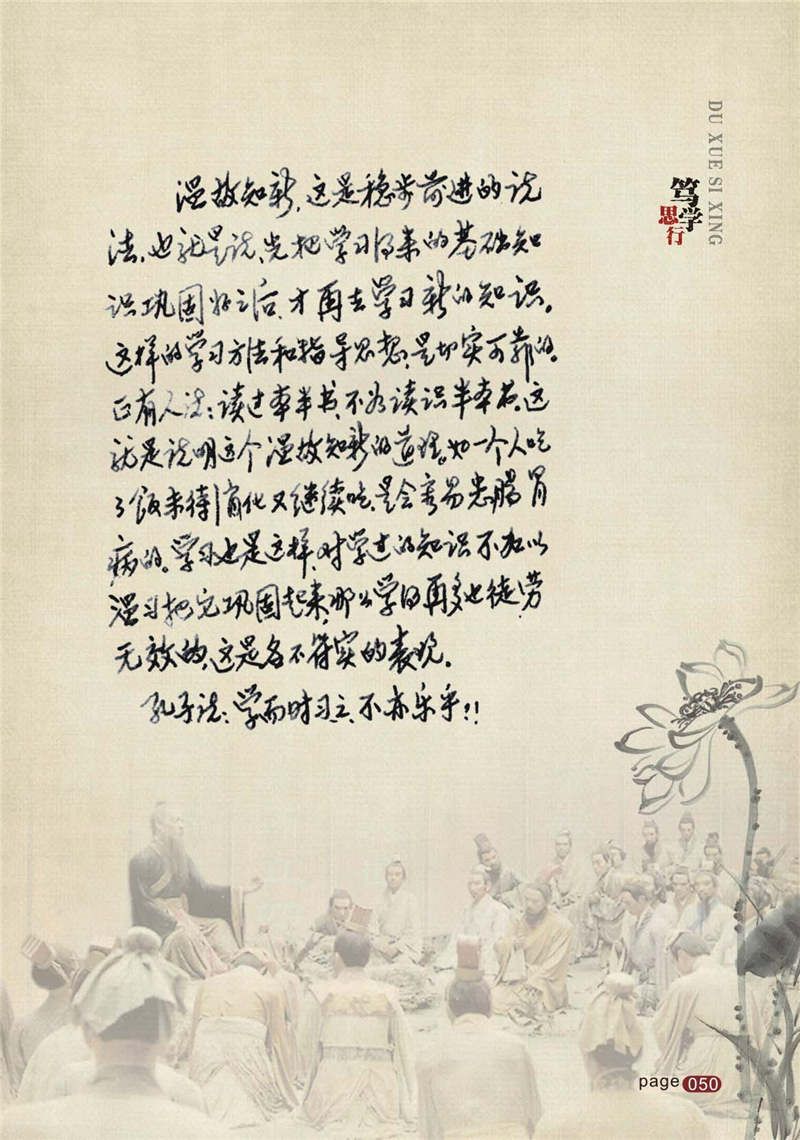 温故知新,这是稳步前进的说
法,也就是说,先把学习得来的基础知
识巩固好之后,才再去学习新的知识。
这样的学习方法和指导思想,是切实可靠的。
正有人说:读过半书,不如读识半本书。这
就是说明这个温故知新的道理。如一个人吃
了饭未待消化又继续吃,是会容易患肠胃
病的。学习也是这样,对学过的知识不加以
温习把它巩固起来,那么学的再多也徒劳
无效的,这是名不符实的表现。
孔子说:学而时习之,不亦乐乎?!
DU XUE SI XING
笃学
思行
page 050